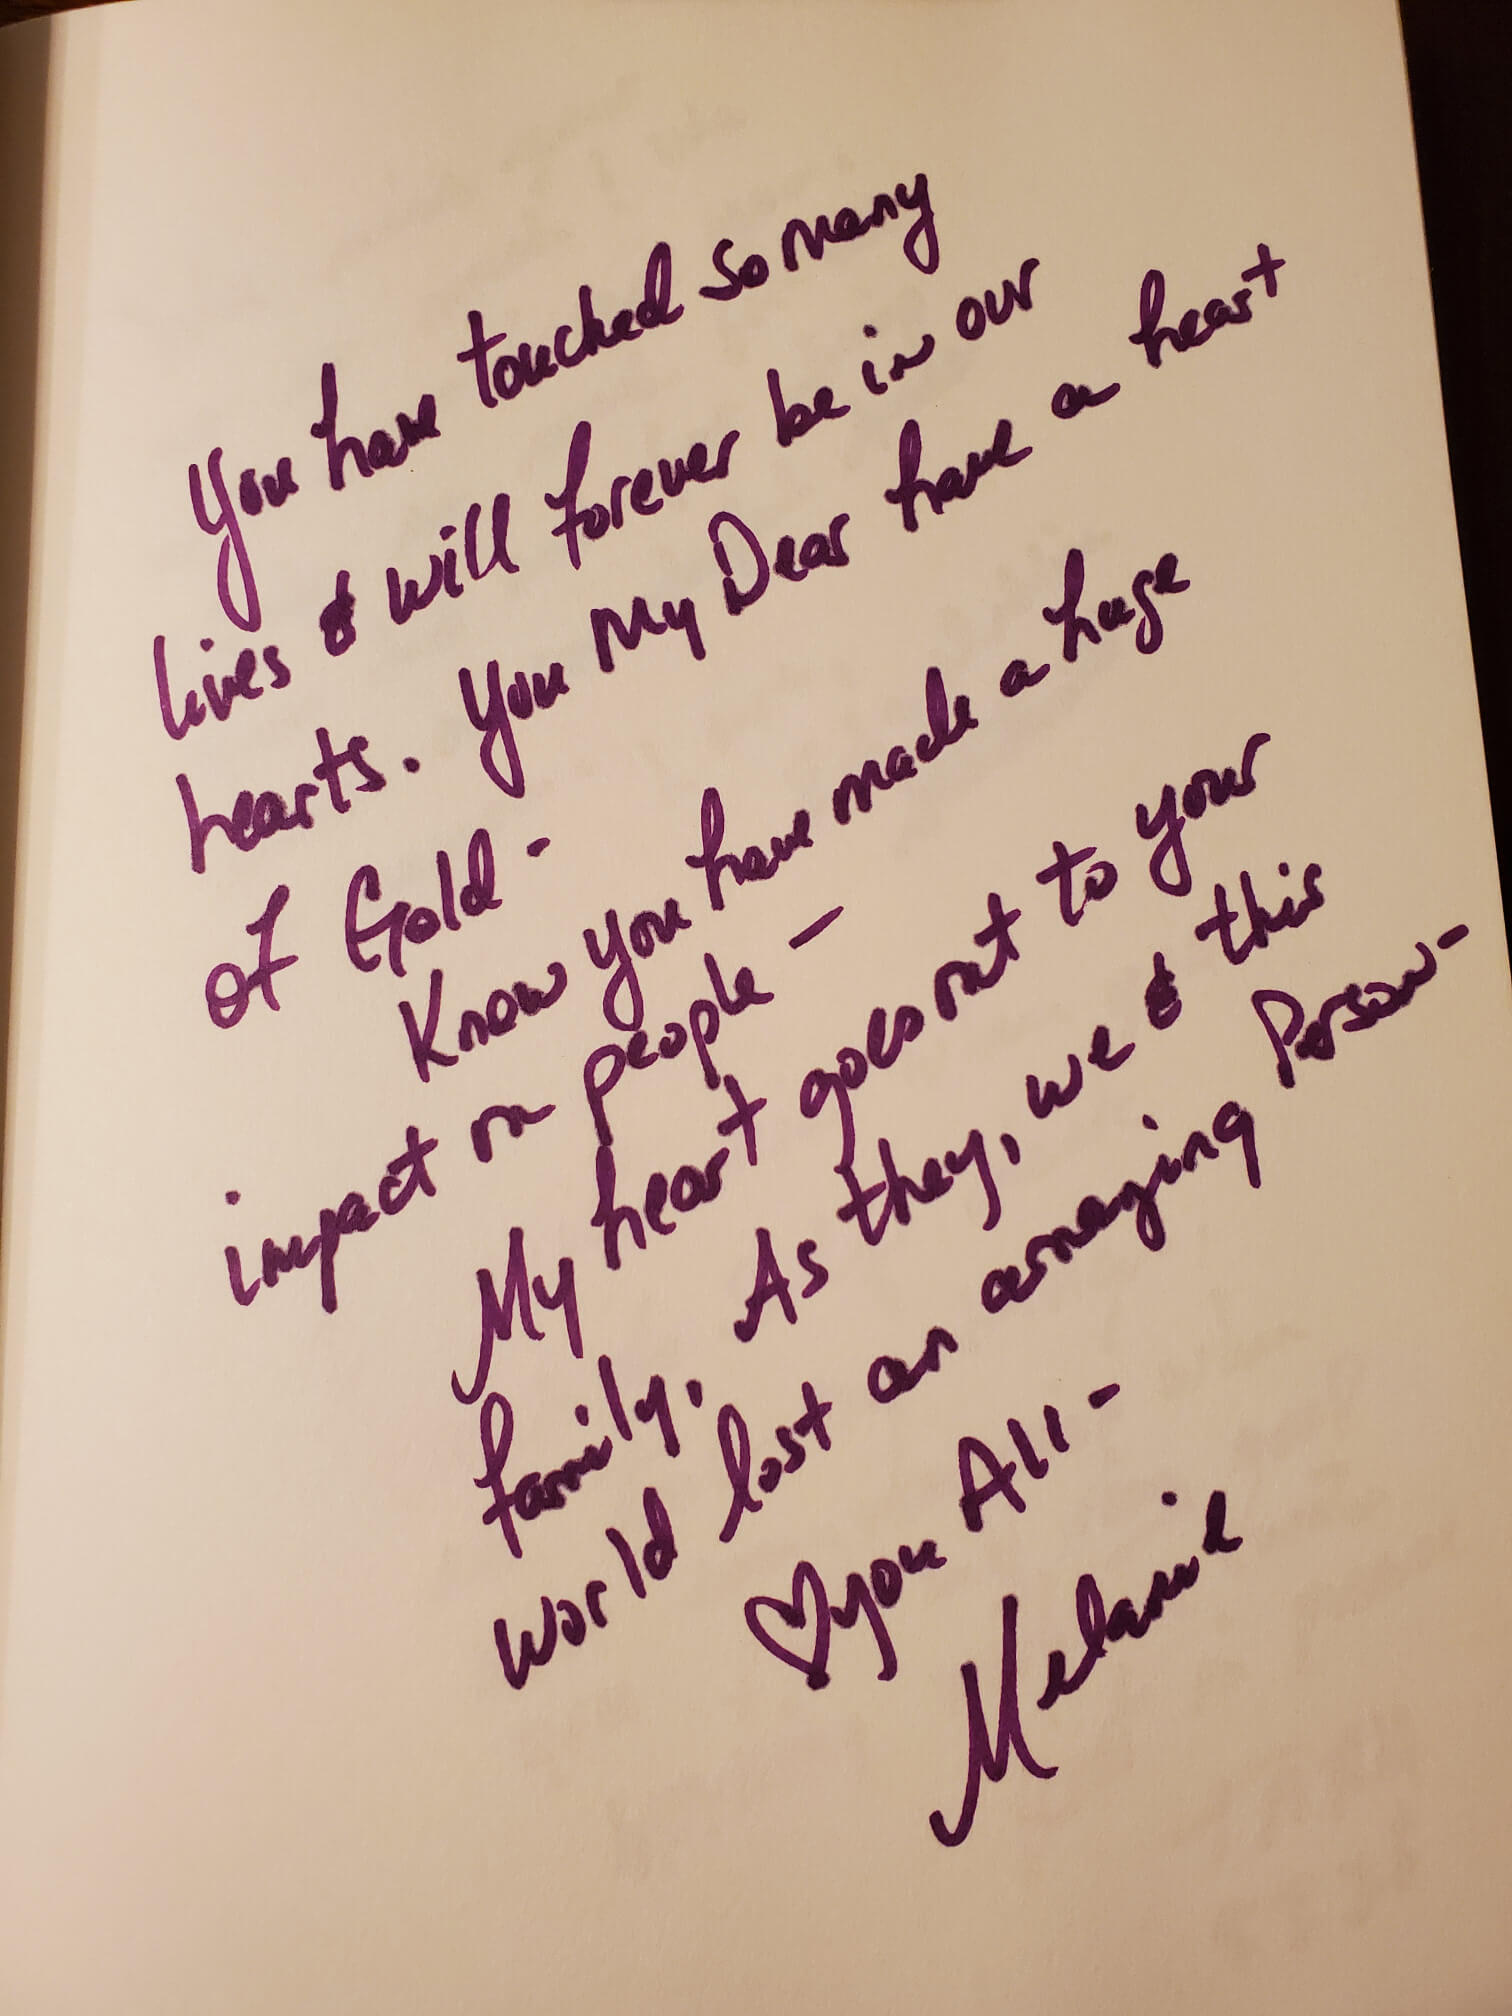 You have touched so many
lives & will forever be in our
hearts. You My Dear have a heart
of Gold -
Know you have made a huge
impact on people -
My heart goes out to your
family. As they, we & this
world lost an amazing Person -
♡ you All -
Melanie